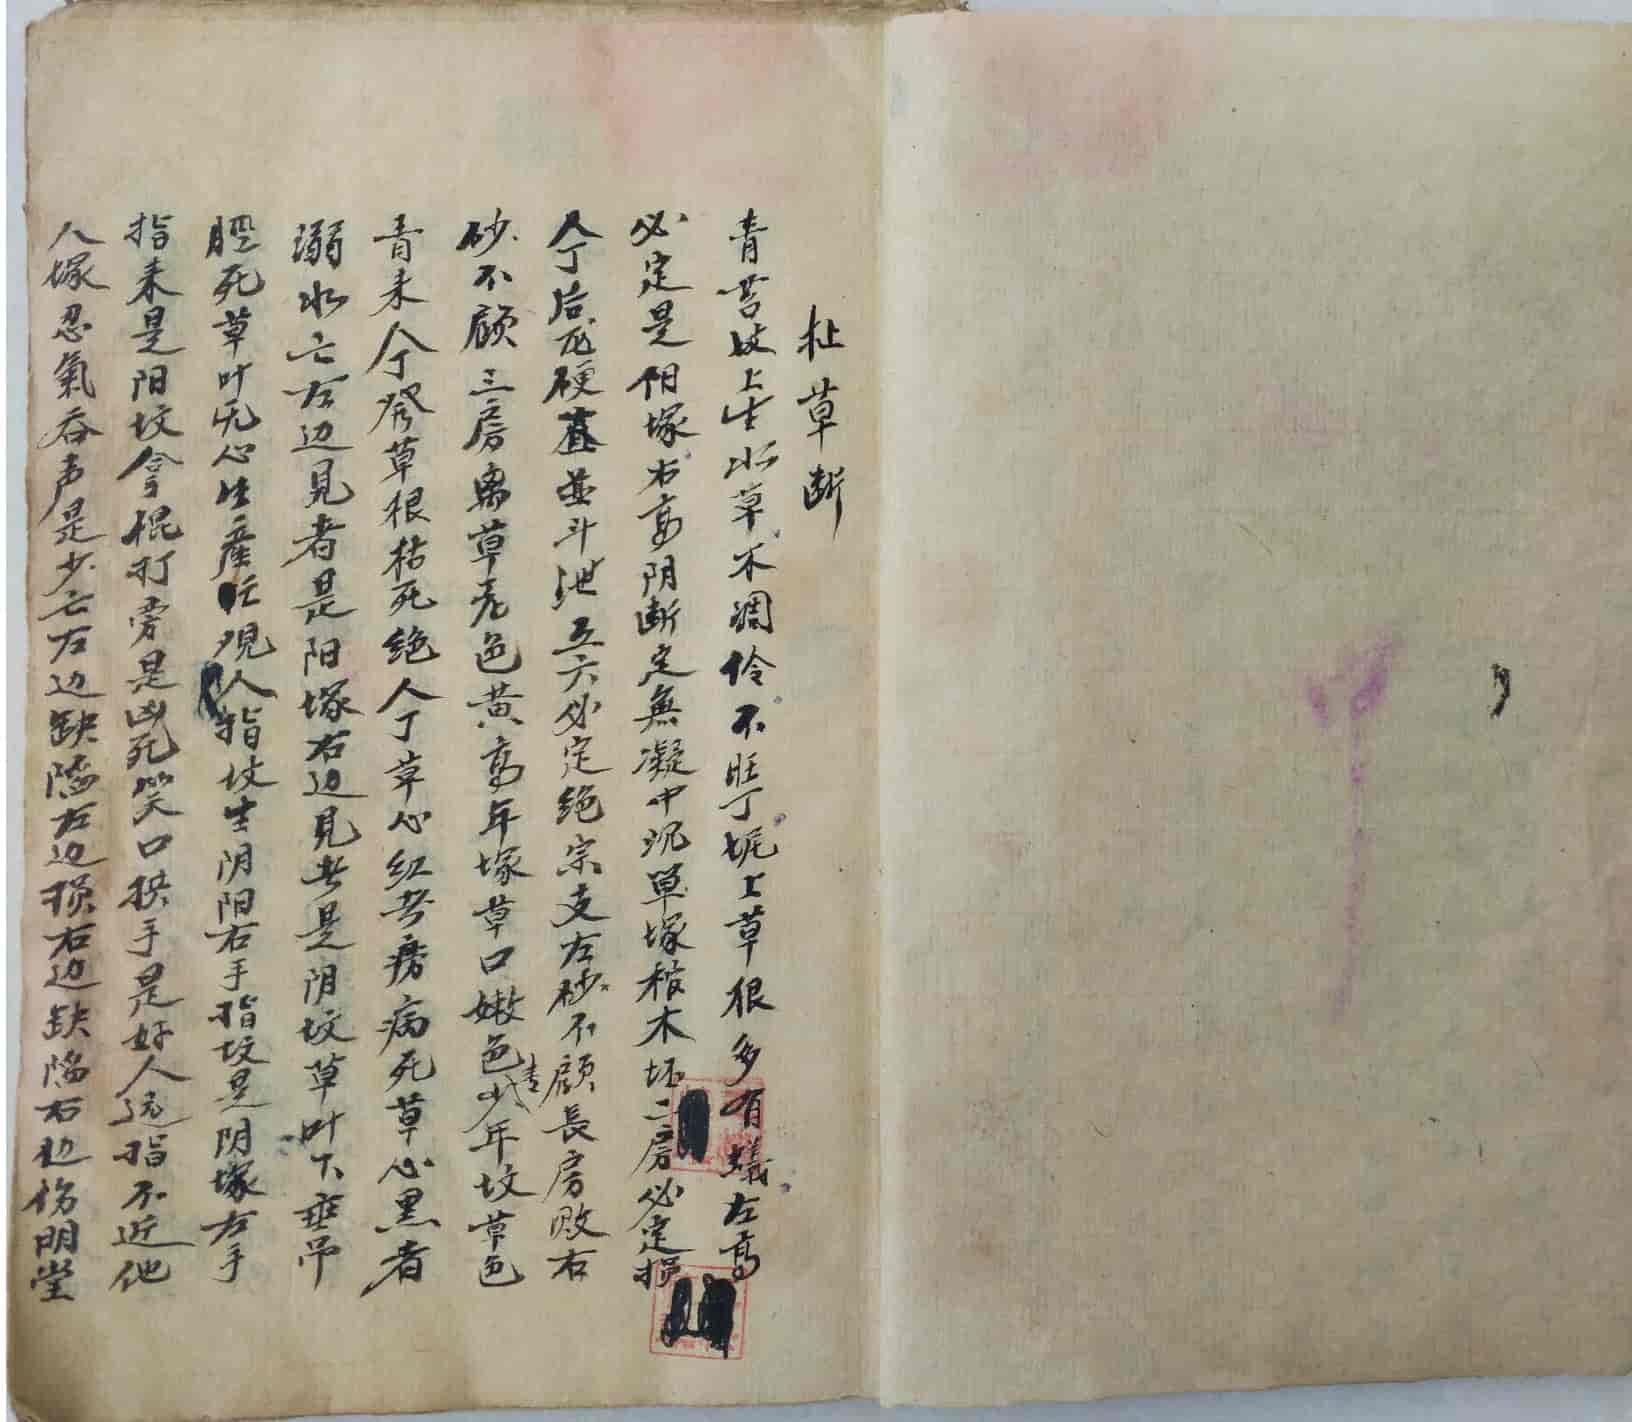 扯草断
青苔坟上生水草不凋伶不旺丁坭上草根多有蟻左高
必定是阳塚右高阴断定無凝中沉单塚棺木坯二房必定损
人丁后龙硬直並斗泄五六必定绝宗支左砂不顧長房败右
砂不顾三房离草尧色黄高年塚草口嫩色青少年坟草色
青来人丁發草根枯死绝人丁草心红者痨病死草心黑者
溺水亡左边見者是阳塚右边見者是阴坟草叶下垂吊
腔死草叶无心生産亡观人指坟生阴阳右手指坟是阴塚左手
指来是阳坟拿棍打旁是凶死笑口拱手是好人远指不近他
人塚忍氣吞声是少亡左边缺陷左边损右边缺陷右边伤明堂